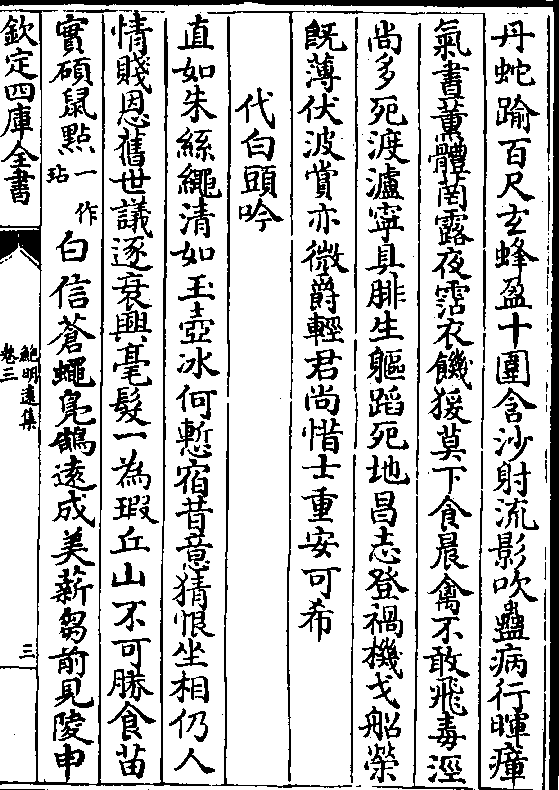 丹蛇踰百尺玄蜂盈十圍含沙射流影吹蠱病行暉瘴
氣晝薰體䓞露夜霑衣饑猨莫下食晨禽不敢飛毒涇
尚多死渡瀘寧具腓生軀蹈死地昌志登禍機戈船榮
既薄伏波賞亦微爵輕君尚惜士重安可希
代白頭吟
直如朱絲繩清如玉壺冰何慙宿昔意猜恨坐相仍人
情賤恩舊世議逐衰興毫髮一為瑕丘山不可勝食苗
實碩鼠點一作玷白信蒼蠅鳧鵠遠成美薪芻前見陵申
欽定四庫全書
鮑明遠集
卷三
三